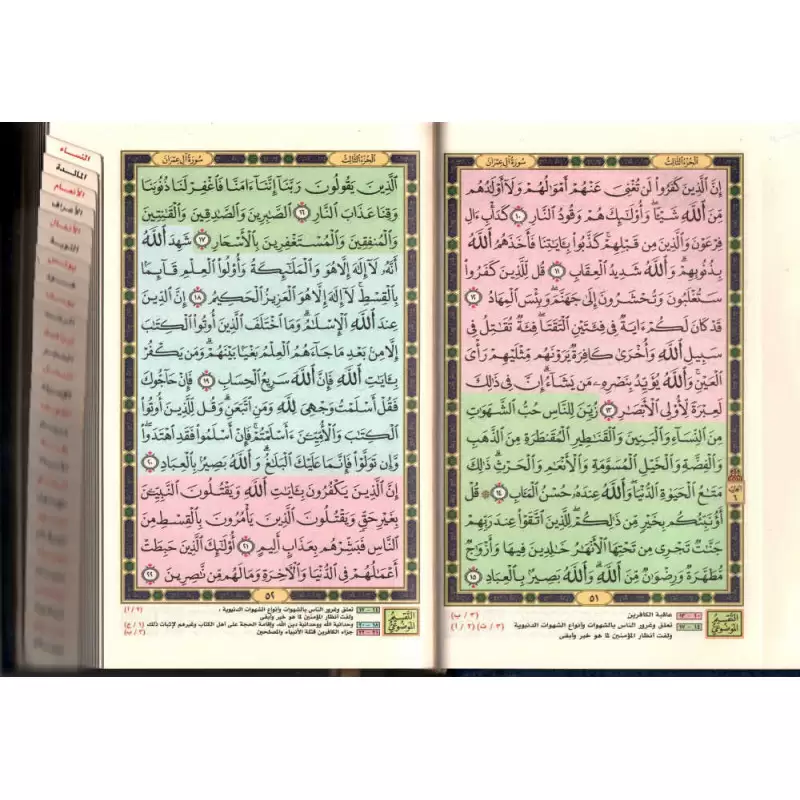 الجزء الثالث
سورة آل عمران
إِنَّ ٱلَّذِينَ كَفَرُوا۟ لَن تُغْنِىَ عَنْهُمْ أَمْوَٰلُهُمْ وَلَآ أَوْلَٰدُهُم
مِّنَ ٱللَّهِ شَيْـًٔا ۖ وَأُو۟لَٰٓئِكَ هُمْ وَقُودُ ٱلنَّارِ ١٠ كَدَأْبِ ءَالِ
فِرْعَوْنَ وَٱلَّذِينَ مِن قَبْلِهِمْ ۚ كَذَّبُوا۟ بِـَٔايَٰتِنَا فَأَخَذَهُمُ ٱللَّهُ
بِذُنُوبِهِمْ ۗ وَٱللَّهُ شَدِيدُ ٱلْعِقَابِ ١١ قُل لِّلَّذِينَ كَفَرُوا۟
سَتُغْلَبُونَ وَتُحْشَرُونَ إِلَىٰ جَهَنَّمَ ۚ وَبِئْسَ ٱلْمِهَادُ ١٢
قَدْ كَانَ لَكُمْ ءَايَةٌ فِى فِئَتَيْنِ ٱلْتَقَتَا ۖ فِئَةٌ تُقَٰتِلُ فِى
سَبِيلِ ٱللَّهِ وَأُخْرَىٰ كَافِرَةٌ يَرَوْنَهُم مِّثْلَيْهِمْ رَأْىَ
ٱلْعَيْنِ ۚ وَٱللَّهُ يُؤَيِّدُ بِنَصْرِهِۦ مَن يَشَآءُ ۗ إِنَّ فِى ذَٰلِكَ
لَعِبْرَةً لِّأُو۟لِى ٱلْأَبْصَٰرِ ١٣ زُيِّنَ لِلنَّاسِ حُبُّ ٱلشَّهَوَٰتِ
مِنَ ٱلنِّسَآءِ وَٱلْبَنِينَ وَٱلْقَنَٰطِيرِ ٱلْمُقَنطَرَةِ مِنَ ٱلذَّهَبِ
وَٱلْفِضَّةِ وَٱلْخَيْلِ ٱلْمُسَوَّمَةِ وَٱلْأَنْعَٰمِ وَٱلْحَرْثِ ۗ ذَٰلِكَ
مَتَٰعُ ٱلْحَيَوٰةِ ٱلدُّنْيَا ۖ وَٱللَّهُ عِندَهُۥ حُسْنُ ٱلْمَـَٔابِ ١٤ ۞ قُلْ
أَؤُنَبِّئُكُم بِخَيْرٍ مِّن ذَٰلِكُمْ ۚ لِلَّذِينَ ٱتَّقَوْا۟ عِندَ رَبِّهِمْ
جَنَّٰتٌ تَجْرِى مِن تَحْتِهَا ٱلْأَنْهَٰرُ خَٰلِدِينَ فِيهَا وَأَزْوَٰجٌ
مُّطَهَّرَةٌ وَرِضْوَٰنٌ مِّنَ ٱللَّهِ ۗ وَٱللَّهُ بَصِيرٌۢ بِٱلْعِبَادِ ١٥
٥١
التقسيم الموضوعي
١٠ – ١٣ عاقبة الكافرين (٣ / ب)
١٤ – ١٧ تعلق وغرور الناس بالشهوات وأنواع الشهوات الدنيوية (٣ / ت) (٢ / أ)
ولفت أنظار المؤمنين لما هو خير وأبقى
الجزء الثالث
سورة آل عمران
ٱلَّذِينَ يَقُولُونَ رَبَّنَآ إِنَّنَآ ءَامَنَّا فَٱغْفِرْ لَنَا ذُنُوبَنَا
وَقِنَا عَذَابَ ٱلنَّارِ ١٦ ٱلصَّٰبِرِينَ وَٱلصَّٰدِقِينَ وَٱلْقَٰنِتِينَ
وَٱلْمُنفِقِينَ وَٱلْمُسْتَغْفِرِينَ بِٱلْأَسْحَارِ ١٧ شَهِدَ ٱللَّهُ
أَنَّهُۥ لَآ إِلَٰهَ إِلَّا هُوَ وَٱلْمَلَٰٓئِكَةُ وَأُو۟لُوا۟ ٱلْعِلْمِ قَآئِمًۢا
بِٱلْقِسْطِ ۚ لَآ إِلَٰهَ إِلَّا هُوَ ٱلْعَزِيزُ ٱلْحَكِيمُ ١٨ إِنَّ ٱلدِّينَ
عِندَ ٱللَّهِ ٱلْإِسْلَٰمُ ۗ وَمَا ٱخْتَلَفَ ٱلَّذِينَ أُوتُوا۟ ٱلْكِتَٰبَ
إِلَّا مِنۢ بَعْدِ مَا جَآءَهُمُ ٱلْعِلْمُ بَغْيًۢا بَيْنَهُمْ ۗ وَمَن يَكْفُرْ
بِـَٔايَٰتِ ٱللَّهِ فَإِنَّ ٱللَّهَ سَرِيعُ ٱلْحِسَابِ ١٩ فَإِنْ حَآجُّوكَ
فَقُلْ أَسْلَمْتُ وَجْهِىَ لِلَّهِ وَمَنِ ٱتَّبَعَنِ ۗ وَقُل لِّلَّذِينَ أُوتُوا۟
ٱلْكِتَٰبَ وَٱلْأُمِّيِّـۧنَ ءَأَسْلَمْتُمْ ۚ فَإِنْ أَسْلَمُوا۟ فَقَدِ ٱهْتَدَوا۟ ۖ
وَّإِن تَوَلَّوْا۟ فَإِنَّمَا عَلَيْكَ ٱلْبَلَٰغُ ۗ وَٱللَّهُ بَصِيرٌۢ بِٱلْعِبَادِ ٢٠
إِنَّ ٱلَّذِينَ يَكْفُرُونَ بِـَٔايَٰتِ ٱللَّهِ وَيَقْتُلُونَ ٱلنَّبِيِّـۧنَ
بِغَيْرِ حَقٍّ وَيَقْتُلُونَ ٱلَّذِينَ يَأْمُرُونَ بِٱلْقِسْطِ مِنَ
ٱلنَّاسِ فَبَشِّرْهُم بِعَذَابٍ أَلِيمٍ ٢١ أُو۟لَٰٓئِكَ ٱلَّذِينَ حَبِطَتْ
أَعْمَٰلُهُمْ فِى ٱلدُّنْيَا وَٱلْءَاخِرَةِ وَمَا لَهُم مِّن نَّٰصِرِينَ ٢٢
٥٢
التقسيم الموضوعي
١٤ – ١٧ تعلق وغرور الناس بالشهوات وأنواع الشهوات الدنيوية : (٢ / أ)
ولفت أنظار المؤمنين لما هو خير وأبقى
١٨ – ٢٠ وحدانية الله ووحدانية دين الله، وإقامة الحجة على أهل الكتاب وغيرهم لإثبات ذلك (٦ / ع)
٢١ – ٢٢ جزاء الكافرين قتلة الأنبياء والمصلحين (٣ / ب)
النساء
المائدة
الأنعام
الأعراف
الأنفال
التوبة
يونس
هود
يوسف